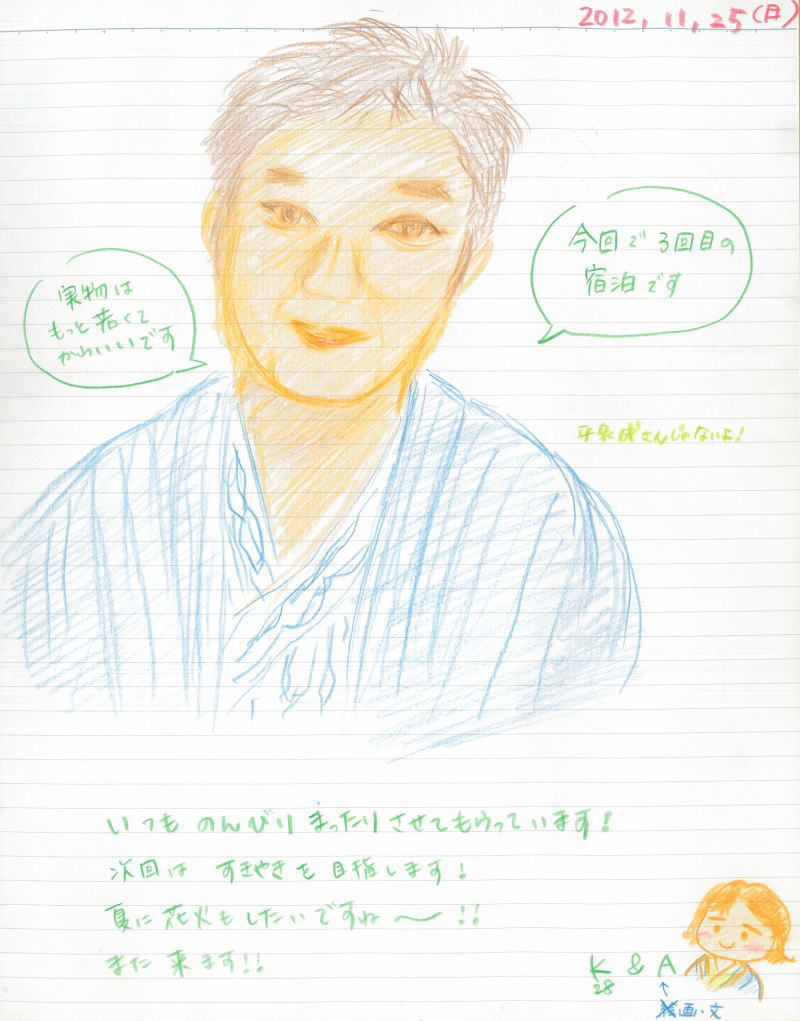 2012, 11, 25 (日)
今回で 3回目の
宿泊です
実物は
もっと若くて
かわいいです
平泉成さんじゃないよ!
いつも のんびり まったり させてもらっています!
次回は すきやきを 目指します!
夏に 花火も したいですね〜!!
また 来ます!!
K & A
28
↑
絵画・文